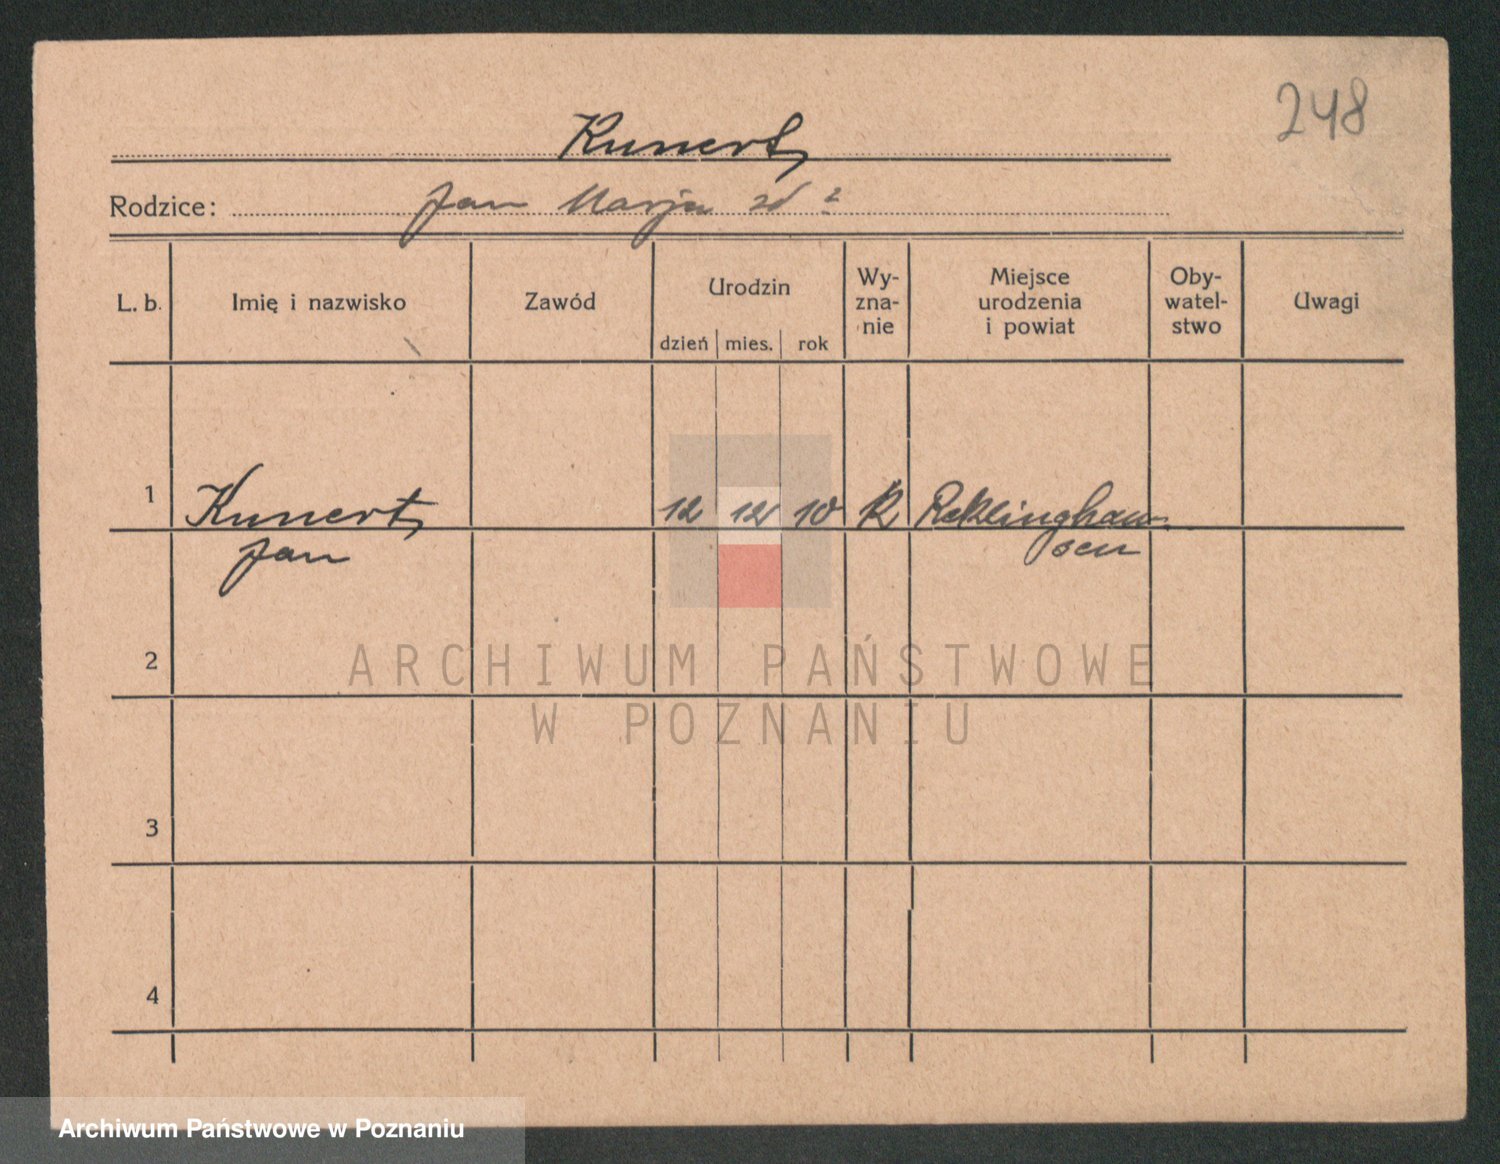 248
Kunert
Rodzice: Jan Marja zd ?
L. b. Imię i nazwisko Zawód Urodzin dzień mies. rok Wy-zna-nie Miejsce urodzenia i powiat Oby-watel-stwo Uwagi
1 Kunert 12 12 10 k Reklinghau-
Jan sen
2
ARCHIWUM PAŃSTWOWE
W POZNANIU
3
4
Archiwum Państwowe w Poznaniu